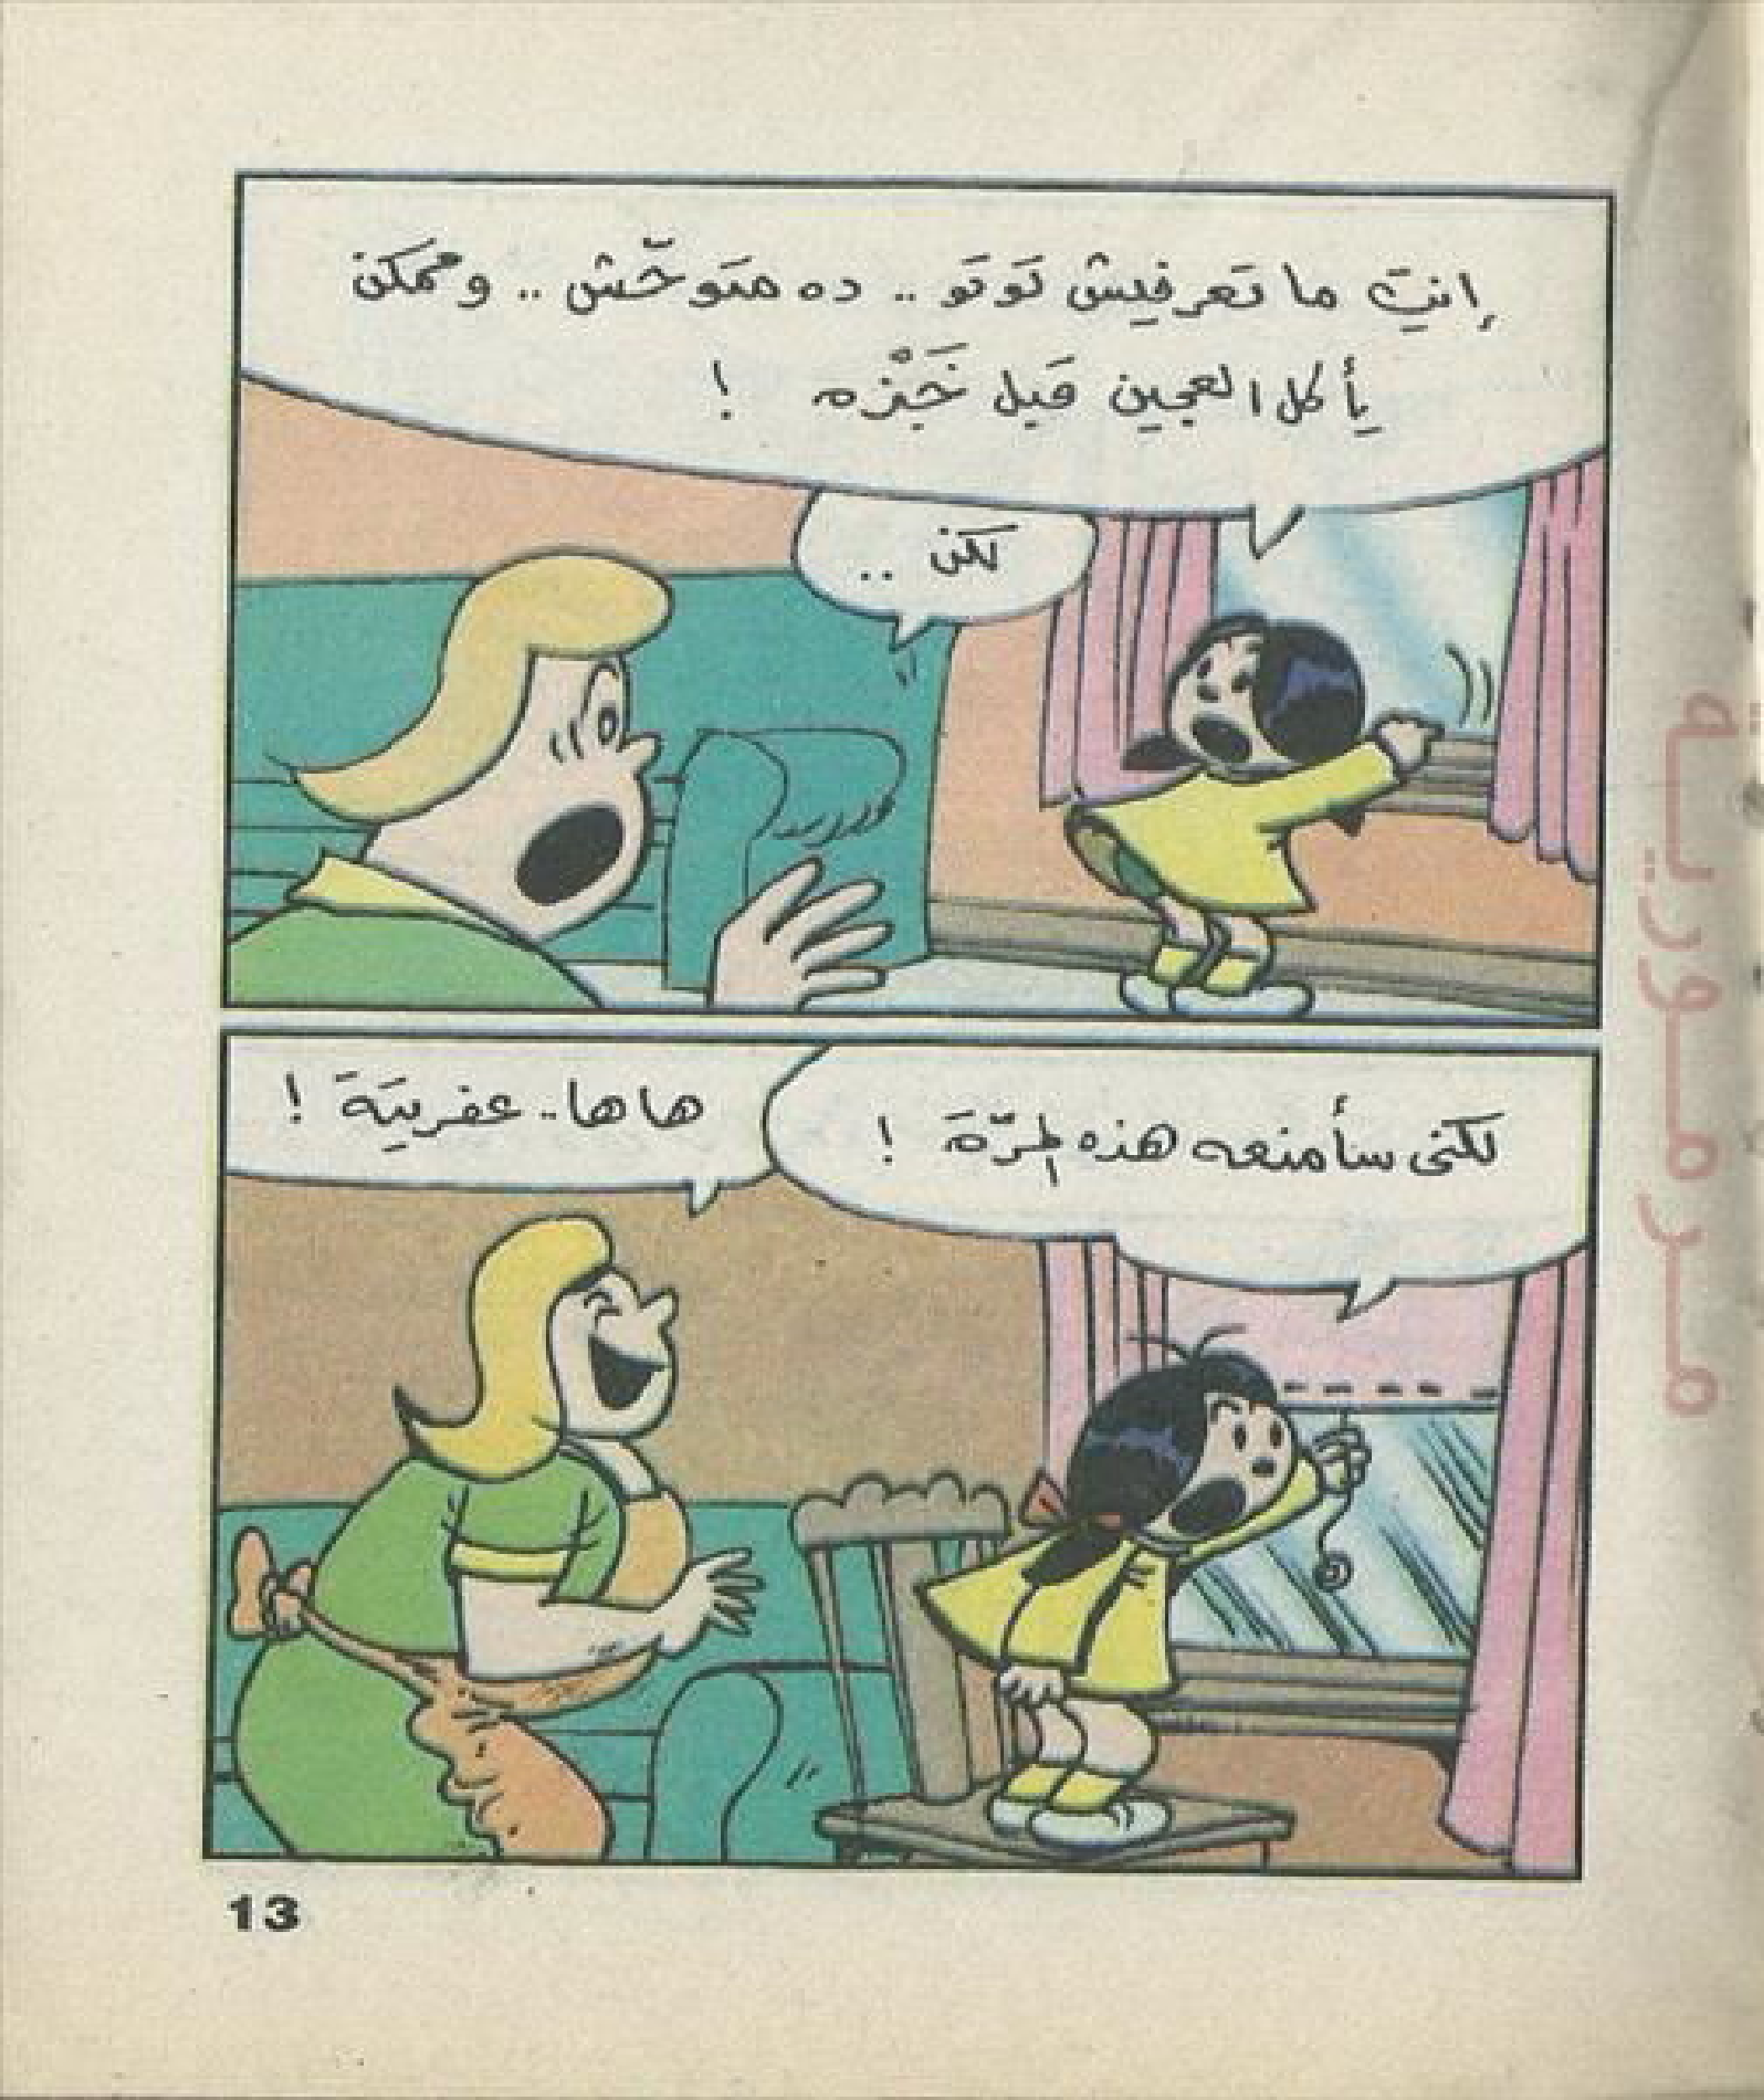 إنتِ ما تَعرفيش تَوتَو .. ده متَوحِّش .. وممكن
يأكل العجين قبل خَبْزه !
لكن ..
لكنى سأمنعه هذه المرّة !
هاها.. عفريتَة !
مـرمـوريـه
13